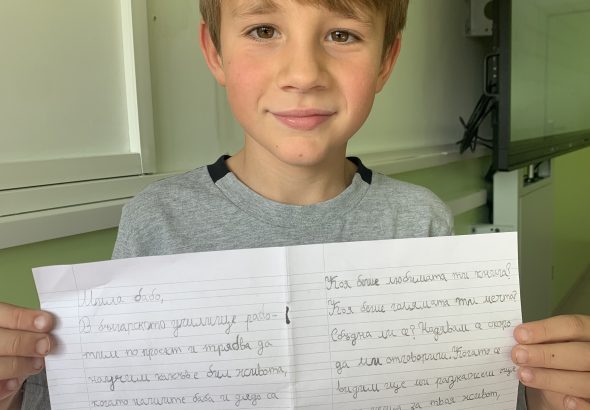 Мила бабо,
В българското училище рабо-
тим по проект и трябва да
научим какъв е бил живота,
когато нашите баба и дядо са
Коя беше любимата ти книга?
Коя беше голямата ти мечта?
Сбъдна ли се? Надявам се скоро
да ми отговориш. Когато се
видим ще ми разкажеш още
за твоя живот,